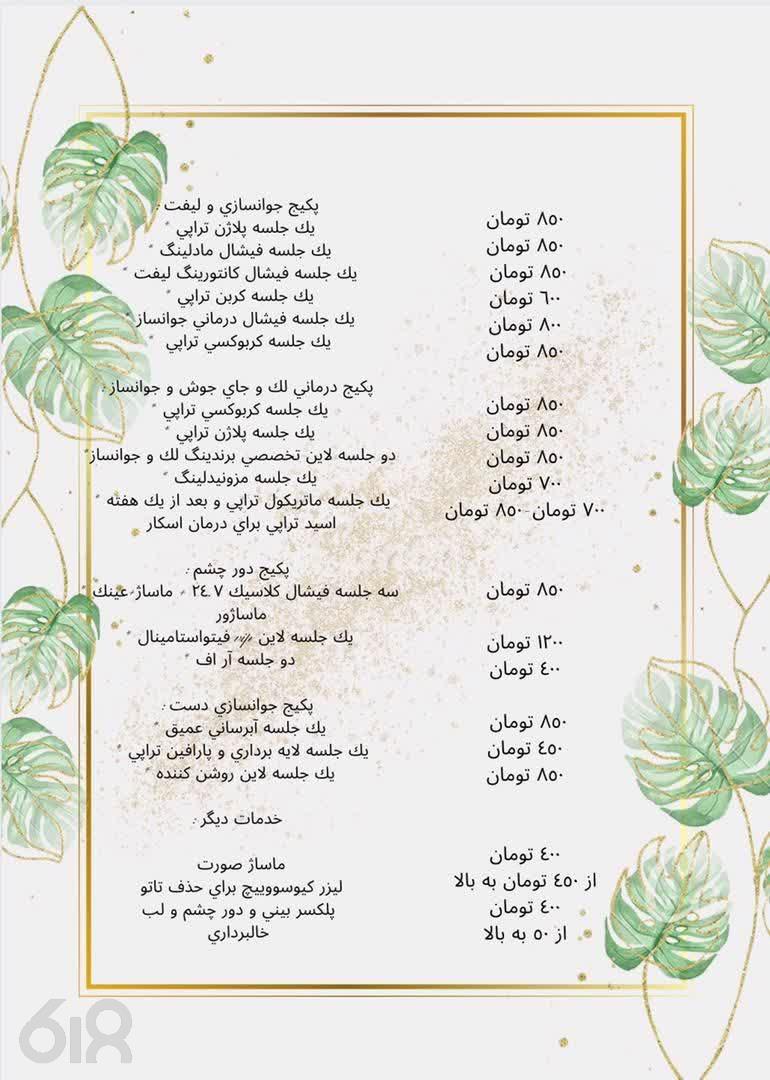 پكيج جوانسازي و ليفت :
يك جلسه پلاژن تراپي *
يك جلسه فيشال مادلينگ *
يك جلسه فيشال كانتورينگ ليفت *
يك جلسه كربن تراپي *
يك جلسه فيشال درماني جوانساز *
يك جلسه كربوكسي تراپي *
٨٥٠ تومان
٨٥٠ تومان
٨٥٠ تومان
٦٠٠ تومان
٨٠٠ تومان
٨٥٠ تومان
پكيج درماني لك و جاي جوش و جوانساز :
يك جلسه كربوكسي تراپي *
يك جلسه پلاژن تراپي *
دو جلسه لاين تخصصي برندينگ لك و جوانساز *
يك جلسه مزونيدلينگ *
يك جلسه ماتريكول تراپي و بعد از يك هفته *
اسيد تراپي براي درمان اسكار
٨٥٠ تومان
٨٥٠ تومان
٨٥٠ تومان
٧٠٠ تومان
٧٠٠ تومان - ٨٥٠ تومان
پكيج دور چشم :
سه جلسه فيشال كلاسيك ٢٤.٧ + ماساژ عينك *
ماساژور
يك جلسه لاين vip فيتواستامينال *
دو جلسه آر اف *
٨٥٠ تومان
١٢٠٠ تومان
٤٠٠ تومان
پكيج جوانسازي دست :
يك جلسه آبرساني عميق *
يك جلسه لايه برداري و پارافين تراپي *
يك جلسه لاين روشن كننده *
٨٥٠ تومان
٤٥٠ تومان
٨٥٠ تومان
خدمات ديگر :
ماساژ صورت
ليزر كيوسووييچ براي حذف تاتو
پلكسر بيني و دور چشم و لب
خالبرداري
٤٠٠ تومان
از ٤٥٠ تومان به بالا
٤٠٠ تومان
از ٥٠ به بالا
618